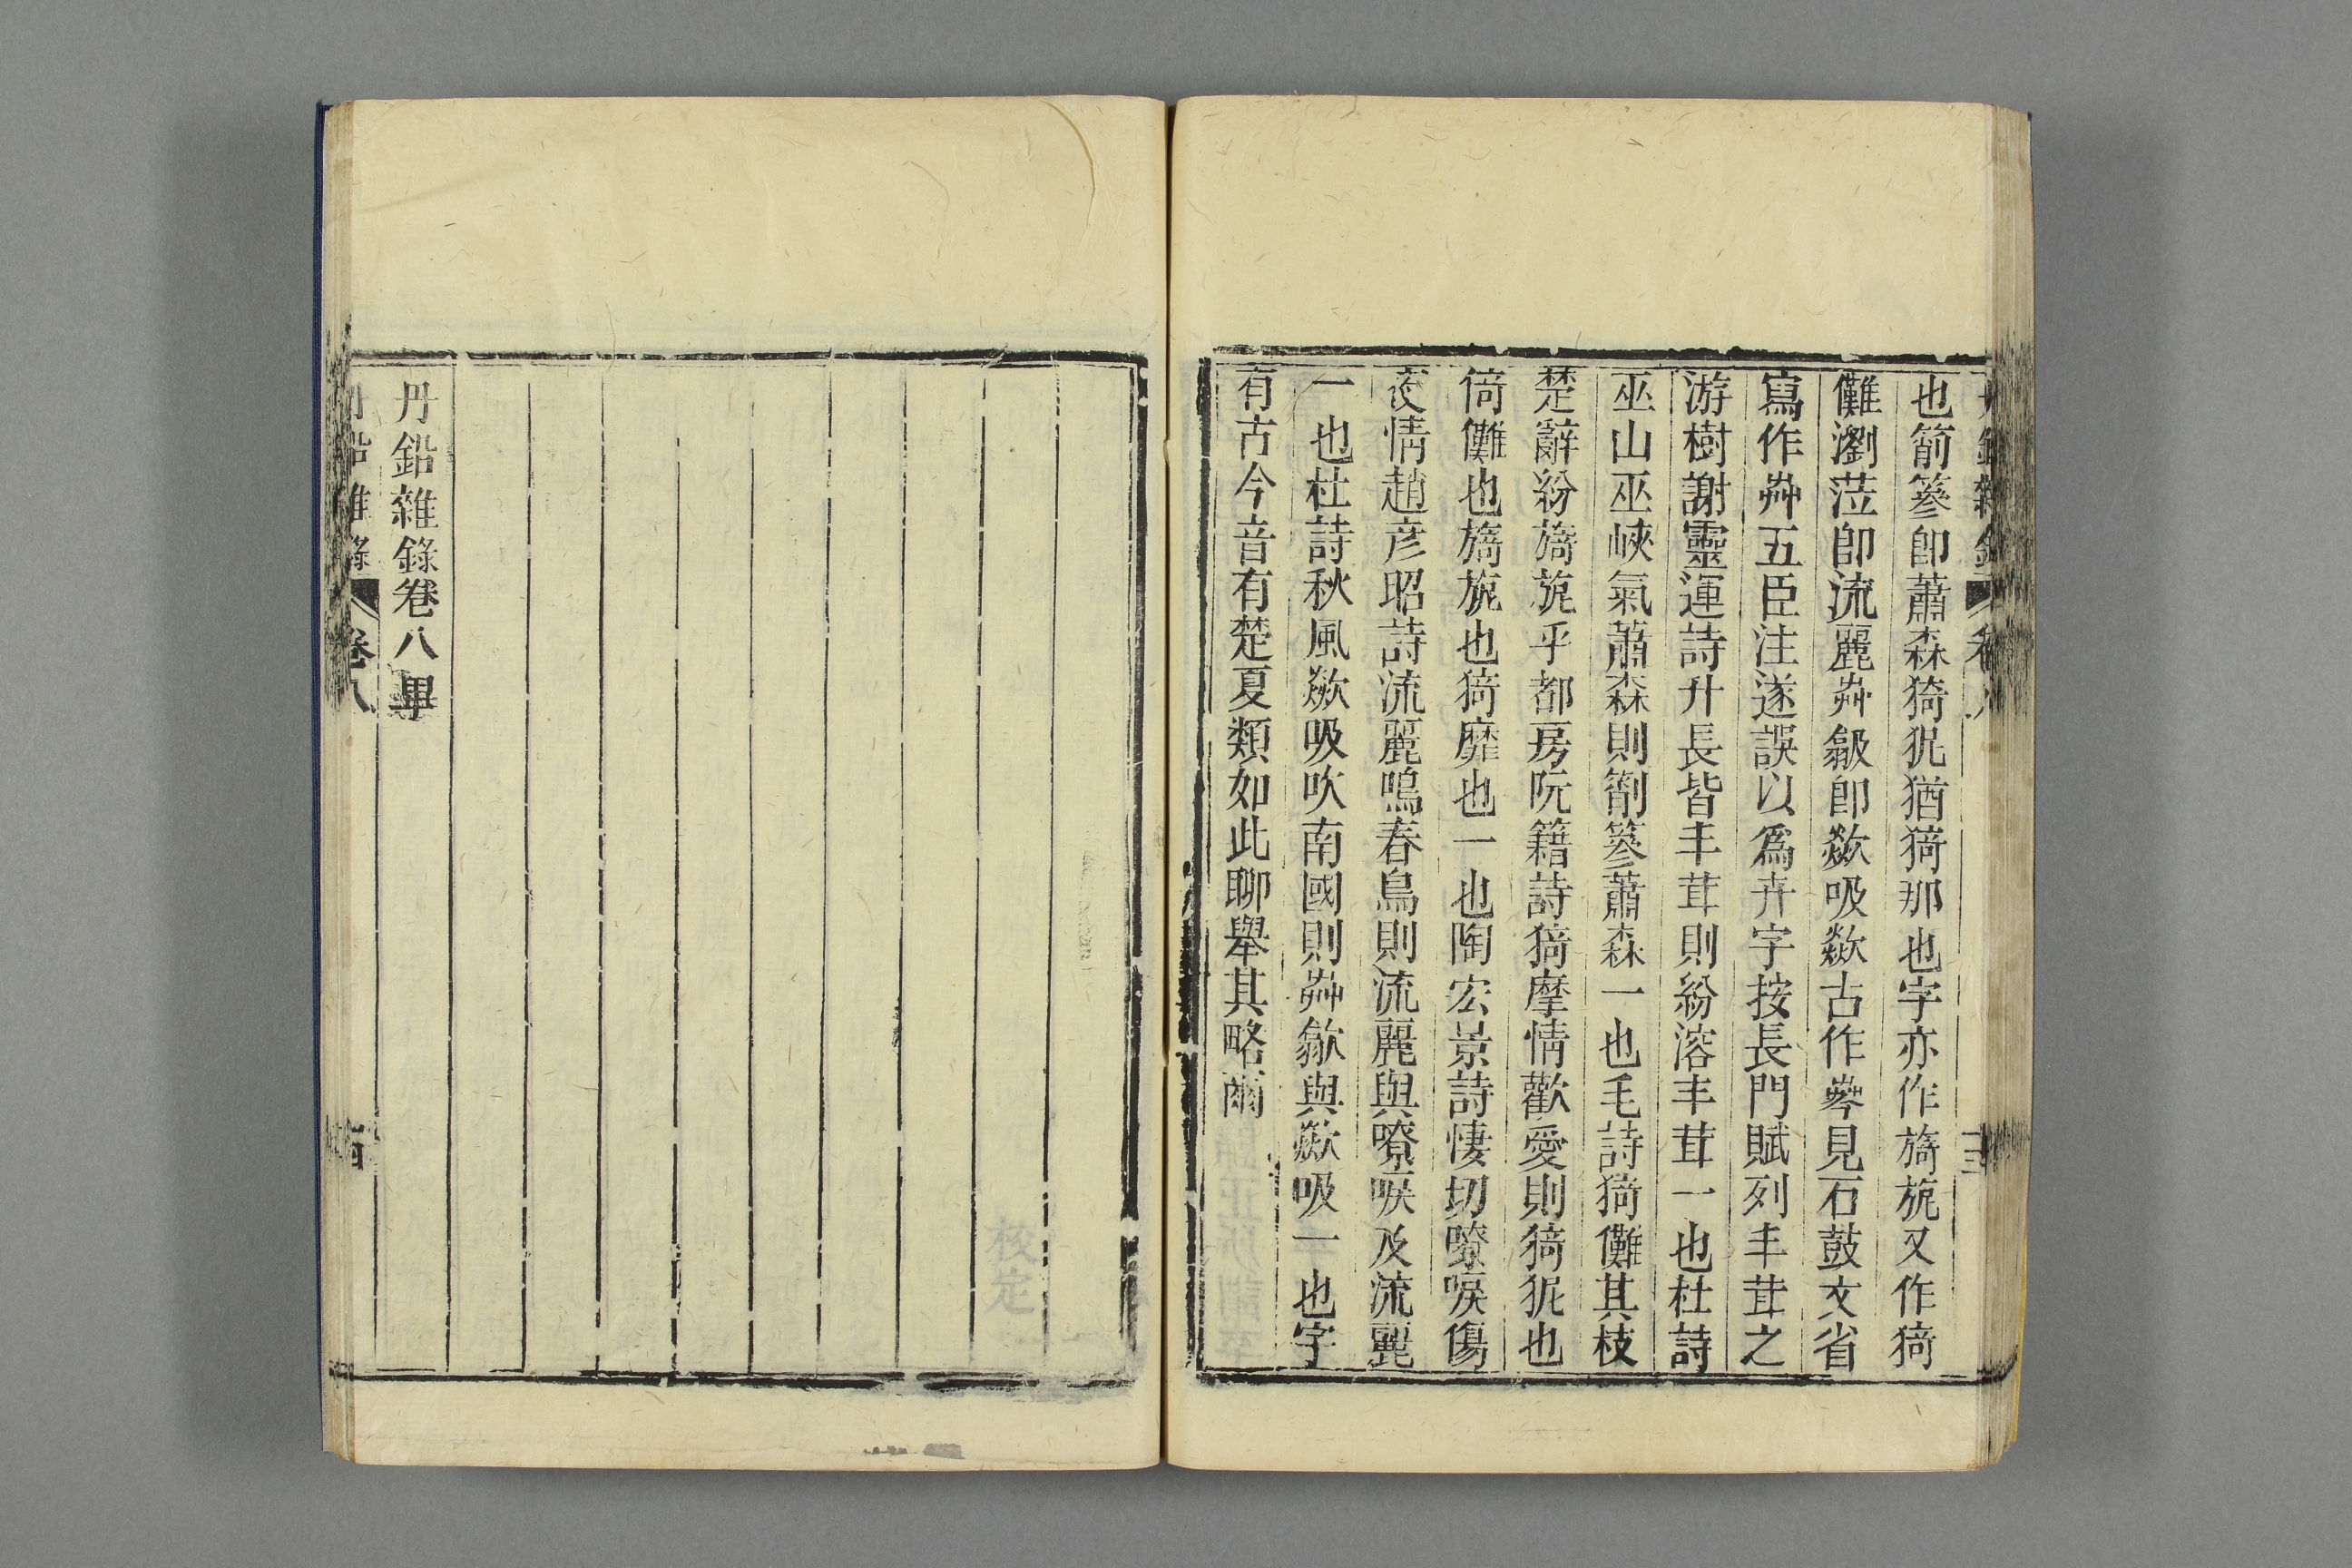 也箾篸卽蕭森猗狔猶猗那也字亦作旖旎又作猗
儺瀏莅卽流麗芔歙卽歘吸歘古作㞤見石鼓文省
寫作芔五臣注遂誤以爲卉字按長門賦列丰茸之
游樹謝靈運詩升長皆丰茸則紛溶丰茸一也杜詩
巫山巫峽氣蕭森則箾篸蕭森一也毛詩猗儺其枝
楚辭紛旖旎乎都房阮籍詩猗靡情歡愛則猗狔也
倚儺也旖旎也猗靡也一也陶宏景詩悽切嘹唳傷
夜情趙彦昭詩流麗鳴春鳥則流麗與嘹唳及流麗
一也杜詩秋風歘吸吹南國則芔歙與歘吸一也字
有古今音有楚夏類如此聊舉其略爾
丹鉛雜錄卷八畢
丹鉛雜錄 卷八